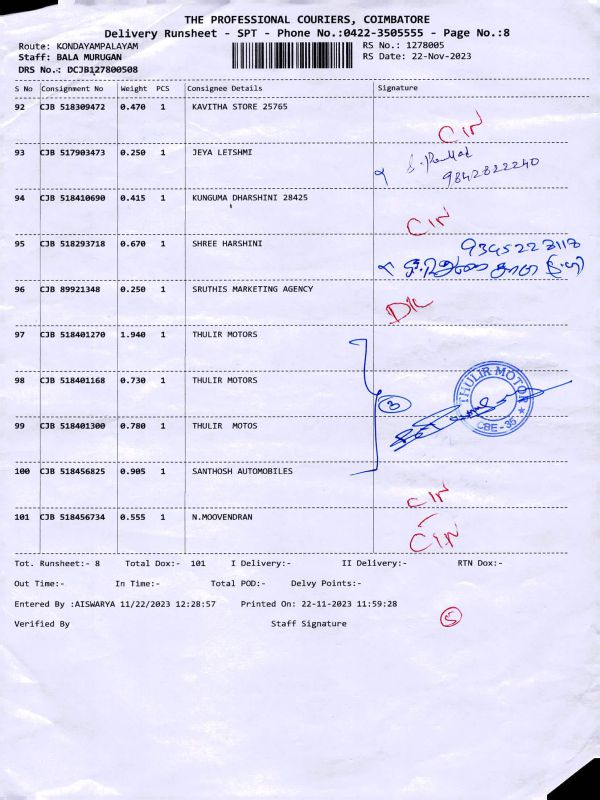 THE PROFESSIONAL COURIERS, COIMBATORE
Delivery Runsheet - SPT - Phone No.:0422-3505555 - Page No.:8
Route: KONDAYAMPALAYAM RS No.: 1278005
Staff: BALA MURUGAN RS Date: 22-Nov-2023
DRS No.: DCJB127800508
S No Consignment No Weight PCS Consignee Details Signature
92 CJB 518309472 0.470 1 KAVITHA STORE 25765
CIN
93 CJB 517903473 0.250 1 JEYA LETSHMI
9842822240
94 CJB 518410690 0.415 1 KUNGUMA DHARSHINI 28425
CIN
95 CJB 518293718 0.670 1 SHREE HARSHINI
96 CJB 89921348 0.250 1 SRUTHIS MARKETING AGENCY
DL
97 CJB 518401270 1.940 1 THULIR MOTORS
98 CJB 518401168 0.730 1 THULIR MOTORS
3
THULIR MOTOR
CBE-35
99 CJB 518401300 0.780 1 THULIR MOTOS
100 CJB 518456825 0.905 1 SANTHOSH AUTOMOBILES
CIN
101 CJB 518456734 0.555 1 N.MOOVENDRAN
CIN
Tot. Runsheet:- 8 Total Dox:- 101 I Delivery:- II Delivery:- RTN Dox:-
Out Time:- In Time:- Total POD:- Delvy Points:-
Entered By :AISWARYA 11/22/2023 12:28:57 Printed On: 22-11-2023 11:59:28
Verified By Staff Signature
5